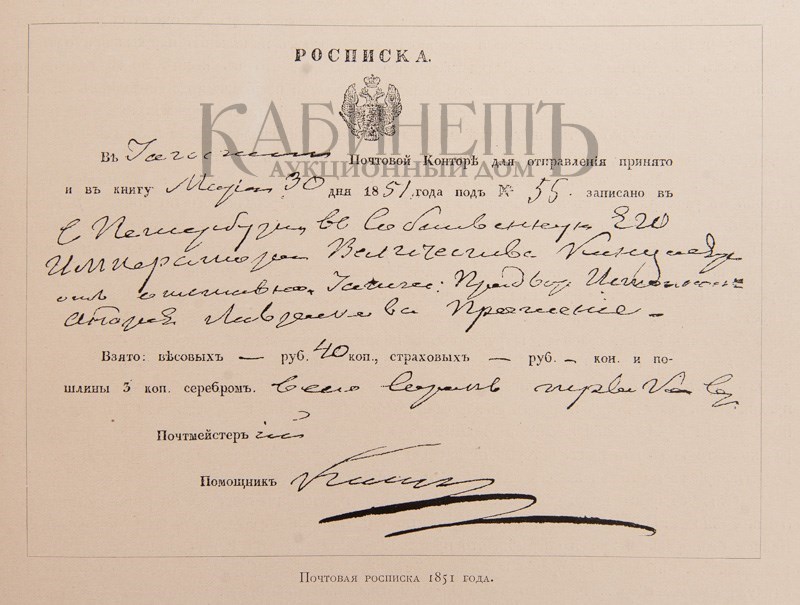 РОСПИСКА.
КАБИНЕТЪ
АУКЦИОННЫЙ ДОМ
Въ Почтовой Конторѣ для отправленія принято
и въ книгу Марта 30 дня 1851 года подъ № 55. записано въ
С Петербургъ въ Собственную Его
Императорскаго Величества Канцелярію
отъ
Прошеніе.
Взято: вѣсовыхъ — руб. 40 коп., страховыхъ — руб. – коп. и по-
шлины 3 коп. серебромъ. всего сорокъ три коп. сер.
Почтмейстеръ
Помощникъ
Почтовая росписка 1851 года.